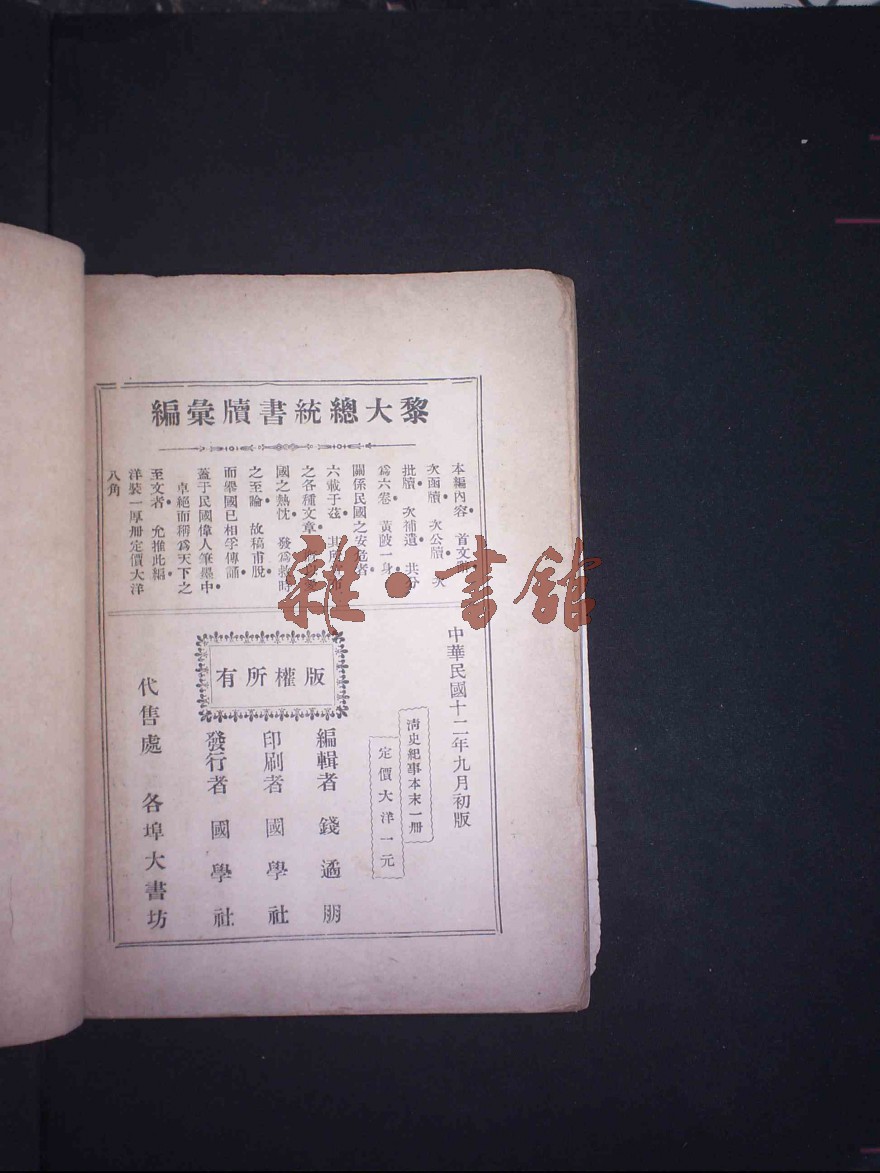 黎大總統書牘彙編
本編內容 首文
次函牘 次公牘 次
批牘 次補遺 共分
爲六卷 黃陂一身
關係民國之安危者
六載于茲 其所
之各種文章
國之熱忱 發爲救時
之至論 故稿甫脫
而舉國已相孚傳誦
蓋于民國偉人筆墨中
卓絕而稱爲天下之
至文者 允推此編
洋裝一厚册定價大洋
八角
中華民國十二年九月初版
清史紀事本末一册
定價大洋一元
版權所有
編輯者 錢遹朋
印刷者 國學社
發行者 國學社
代售處 各埠大書坊
雜·書館